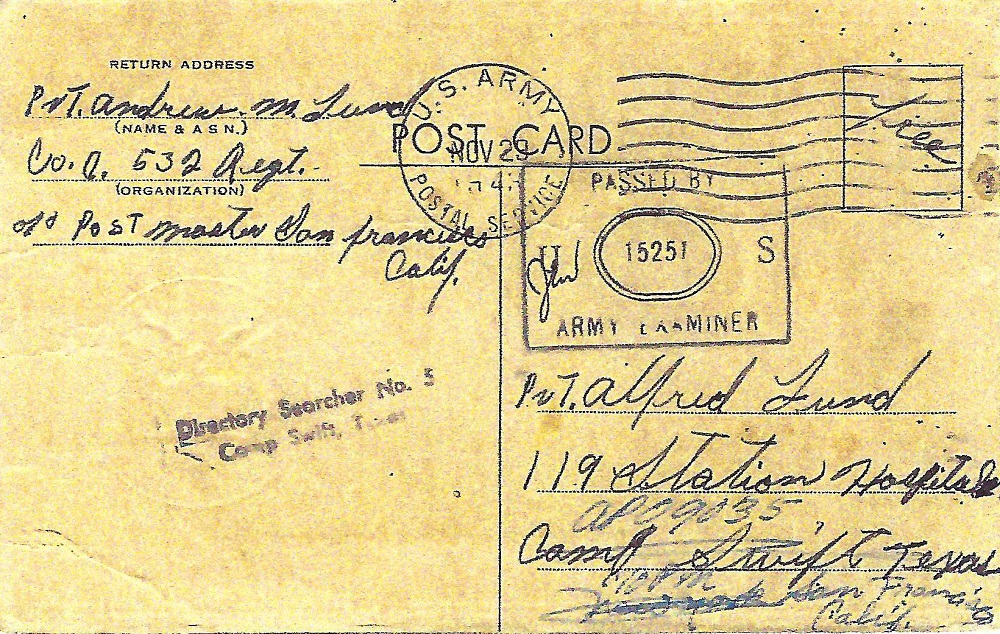 RETURN ADDRESS
Pvt. Andrew. M. Lund
(NAME & A S N.)
Co. 532 Regt.
(ORGANIZATION)
Post master San francisco
Calif.
U.S. ARMY
NOV 29
POSTAL SERVICE
POST CARD
Free
PASSED BY
U S
15251
ARMY EXAMINER
Directory Searcher No. 5
Camp Swift, Texas
Pvt. Alfred Lund
119 Station Hospital
APO 9035
Camp Swift Texas
San Francisco
Calif.